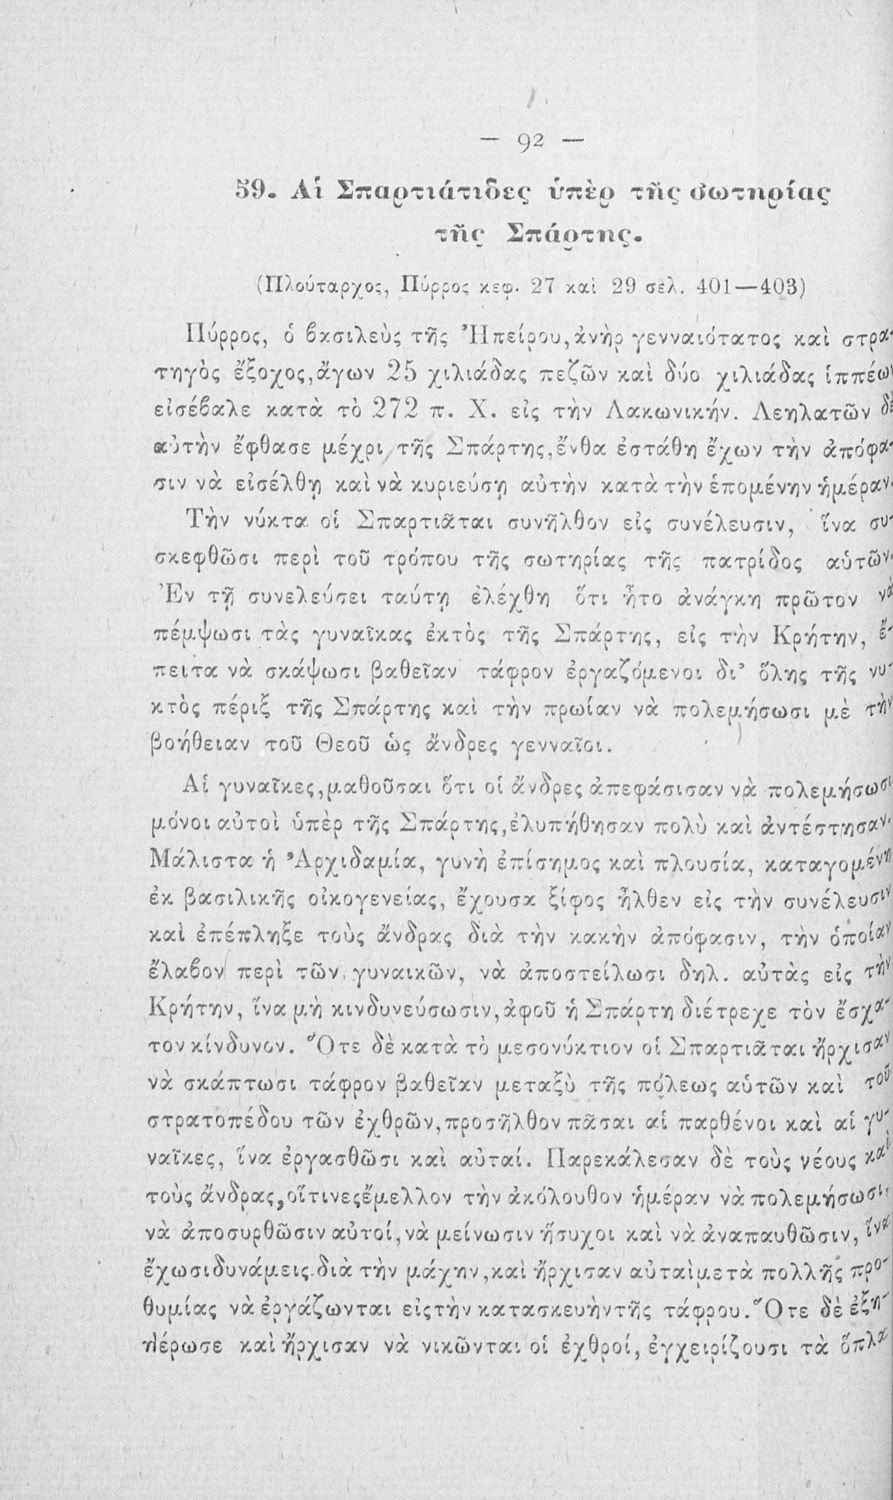 — 92 —
59. Αἱ Σπαρτιάτιδες ὑπὲρ τῆς σωτηρίας
τῆς Σπάρτης.
(Πλούταρχος, Πύρρος κεφ. 27 καὶ 29 σελ. 401—403)
Πύρρος, ὁ βασιλεὺς τῆς Ἠπείρου, ἀνὴρ γενναιότατος καὶ στρα-
τηγὸς ἔξοχος, ἄγων 25 χιλιάδας πεζῶν καὶ δύο χιλιάδας ἱππέων
εἰσέβαλε κατὰ τὸ 272 π. Χ. εἰς τὴν Λακωνικήν. Λεηλατῶν δὲ
αὐτὴν ἔφθασε μέχρι τῆς Σπάρτης, ἔνθα ἐστάθη ἔχων τὴν ἀπόφα-
σιν νὰ εἰσέλθῃ καὶ νὰ κυριεύσῃ αὐτὴν κατὰ τὴν ἑπομένην ἡμέραν.
Τὴν νύκτα οἱ Σπαρτιᾶται συνῆλθον εἰς συνέλευσιν, ἵνα συ-
σκεφθῶσι περὶ τοῦ τρόπου τῆς σωτηρίας τῆς πατρίδος αὑτῶν.
Ἐν τῇ συνελεύσει ταύτῃ ἐλέχθη ὅτι ἦτο ἀνάγκη πρῶτον νὰ
πέμψωσι τὰς γυναῖκας ἐκτὸς τῆς Σπάρτης, εἰς τὴν Κρήτην, ἔ-
πειτα νὰ σκάψωσι βαθεῖαν τάφρον ἐργαζόμενοι δι' ὅλης τῆς νυ-
κτὸς πέριξ τῆς Σπάρτης καὶ τὴν πρωίαν νὰ πολεμήσωσι μὲ τὴν
βοήθειαν τοῦ Θεοῦ ὡς ἄνδρες γενναῖοι.
Αἱ γυναῖκες, μαθοῦσαι ὅτι οἱ ἄνδρες ἀπεφάσισαν νὰ πολεμήσωσι
μόνοι αὐτοὶ ὑπὲρ τῆς Σπάρτης, ἐλυπήθησαν πολὺ καὶ ἀντέστησαν.
Μάλιστα ἡ Ἀρχιδαμία, γυνὴ ἐπίσημος καὶ πλουσία, καταγομένη
ἐκ βασιλικῆς οἰκογενείας, ἔχουσα ξίφος ἦλθεν εἰς τὴν συνέλευσιν
καὶ ἐπέπληξε τοὺς ἄνδρας διὰ τὴν κακὴν ἀπόφασιν, τὴν ὁποίαν
ἔλαβον περὶ τῶν γυναικῶν, νὰ ἀποστείλωσι δηλ. αὐτὰς εἰς τὴν
Κρήτην, ἵνα μὴ κινδυνεύσωσιν, ἀφοῦ ἡ Σπάρτη διέτρεχε τὸν ἔσχα-
τον κίνδυνον. Ὅτε δὲ κατὰ τὸ μεσονύκτιον οἱ Σπαρτιᾶται ἤρχισαν
νὰ σκάπτωσι τάφρον βαθεῖαν μεταξὺ τῆς πόλεως αὑτῶν καὶ τοῦ
στρατοπέδου τῶν ἐχθρῶν, προσῆλθον πᾶσαι αἱ παρθένοι καὶ αἱ γυ-
ναῖκες, ἵνα ἐργασθῶσι καὶ αὐταί. Παρεκάλεσαν δὲ τοὺς νέους καὶ
τοὺς ἄνδρας, οἵτινες ἔμελλον τὴν ἀκόλουθον ἡμέραν νὰ πολεμήσωσι,
νὰ ἀποσυρθῶσιν αὐτοί, νὰ μείνωσιν ἥσυχοι καὶ νὰ ἀναπαυθῶσιν, ἵνα
ἔχωσι δυνάμεις διὰ τὴν μάχην, καὶ ἤρχισαν αὐταὶ μετὰ πολλῆς προ-
θυμίας νὰ ἐργάζωνται εἰς τὴν κατασκευὴν τῆς τάφρου. Ὅτε δὲ ἐξη-
μέρωσε καὶ ἤρχισαν νὰ νικῶνται οἱ ἐχθροί, ἐγχειρίζουσι τὰ ὅπλα